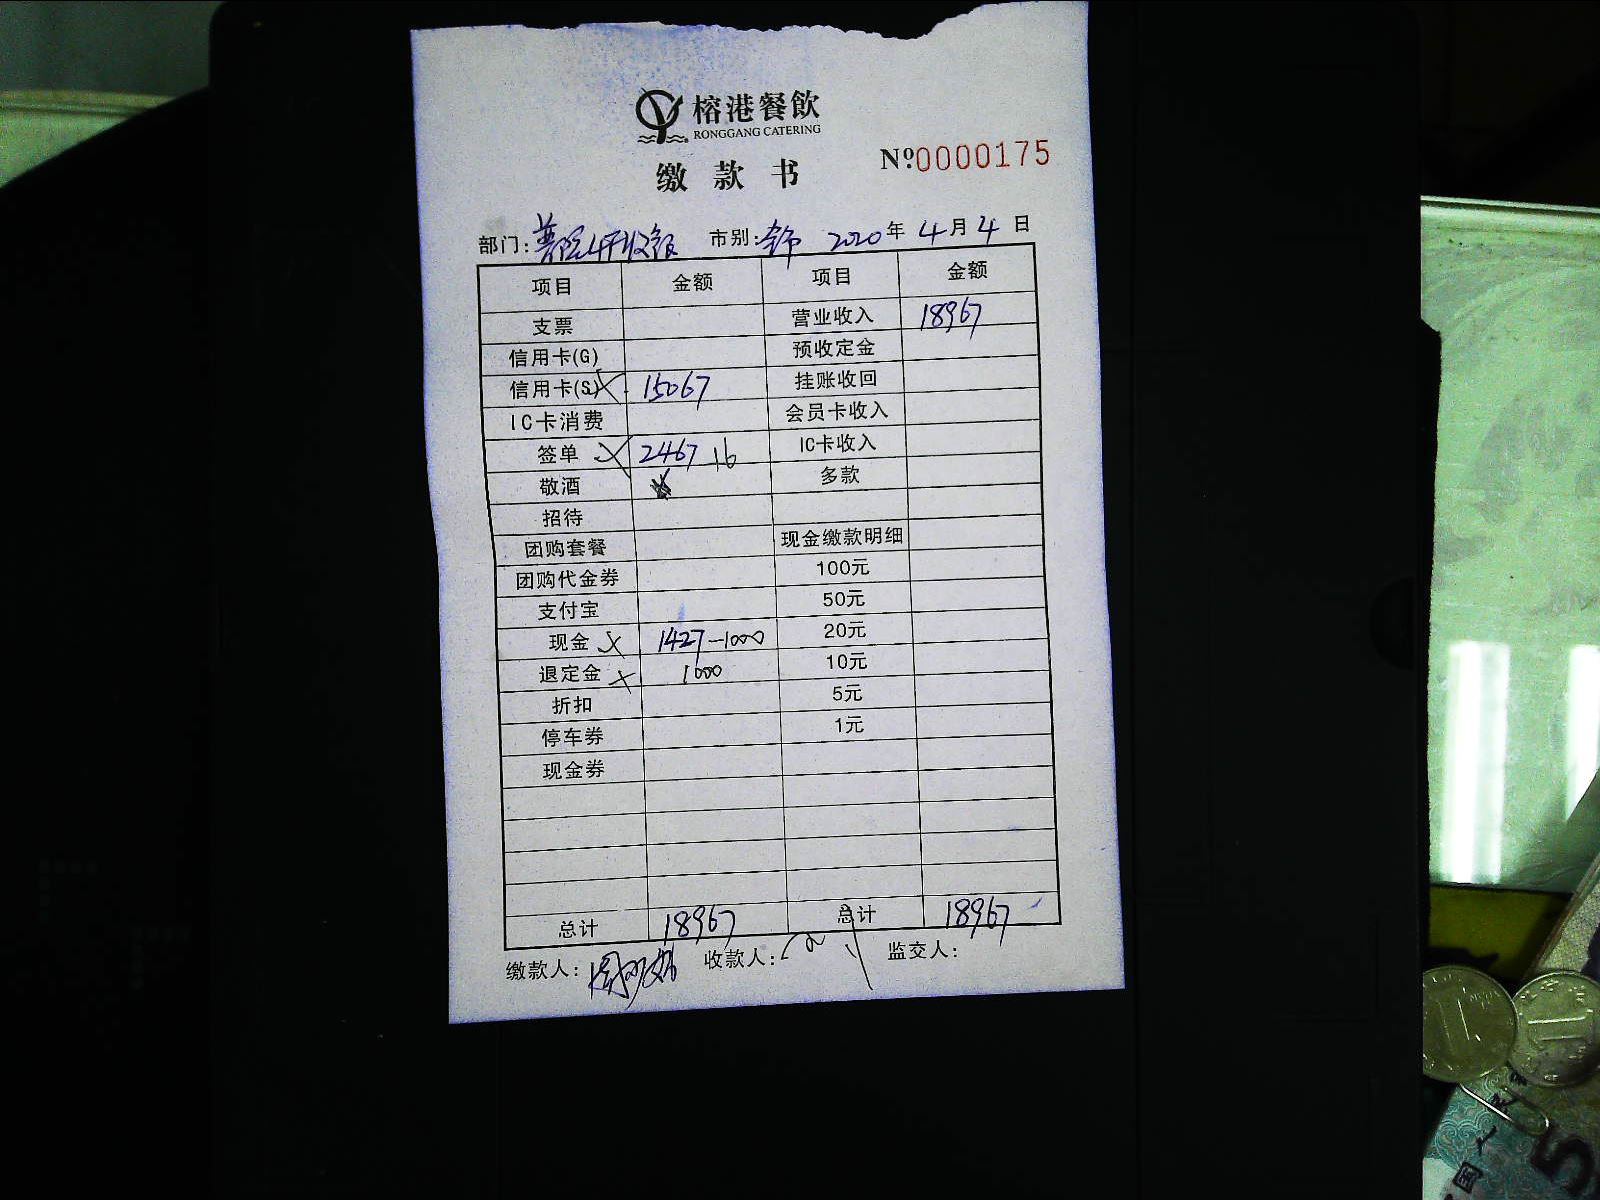 榕港餐飲
RONGGANG CATERING
缴款书 Nº0000175
部门: 收银 市别: 2020年4月4日
项目 金额 项目 金额
支票 营业收入 18967
信用卡(G) 预收定金
信用卡(S) 15067 挂账收回
IC卡消费 会员卡收入
签单 2467 16 IC卡收入
敬酒 多款
招待
团购套餐 现金缴款明细
团购代金券 100元
支付宝 50元
现金 1427-1000 20元
退定金 1000 10元
折扣 5元
停车券 1元
现金券
总计 18967 总计 18967
缴款人: 收款人: 监交人:
5